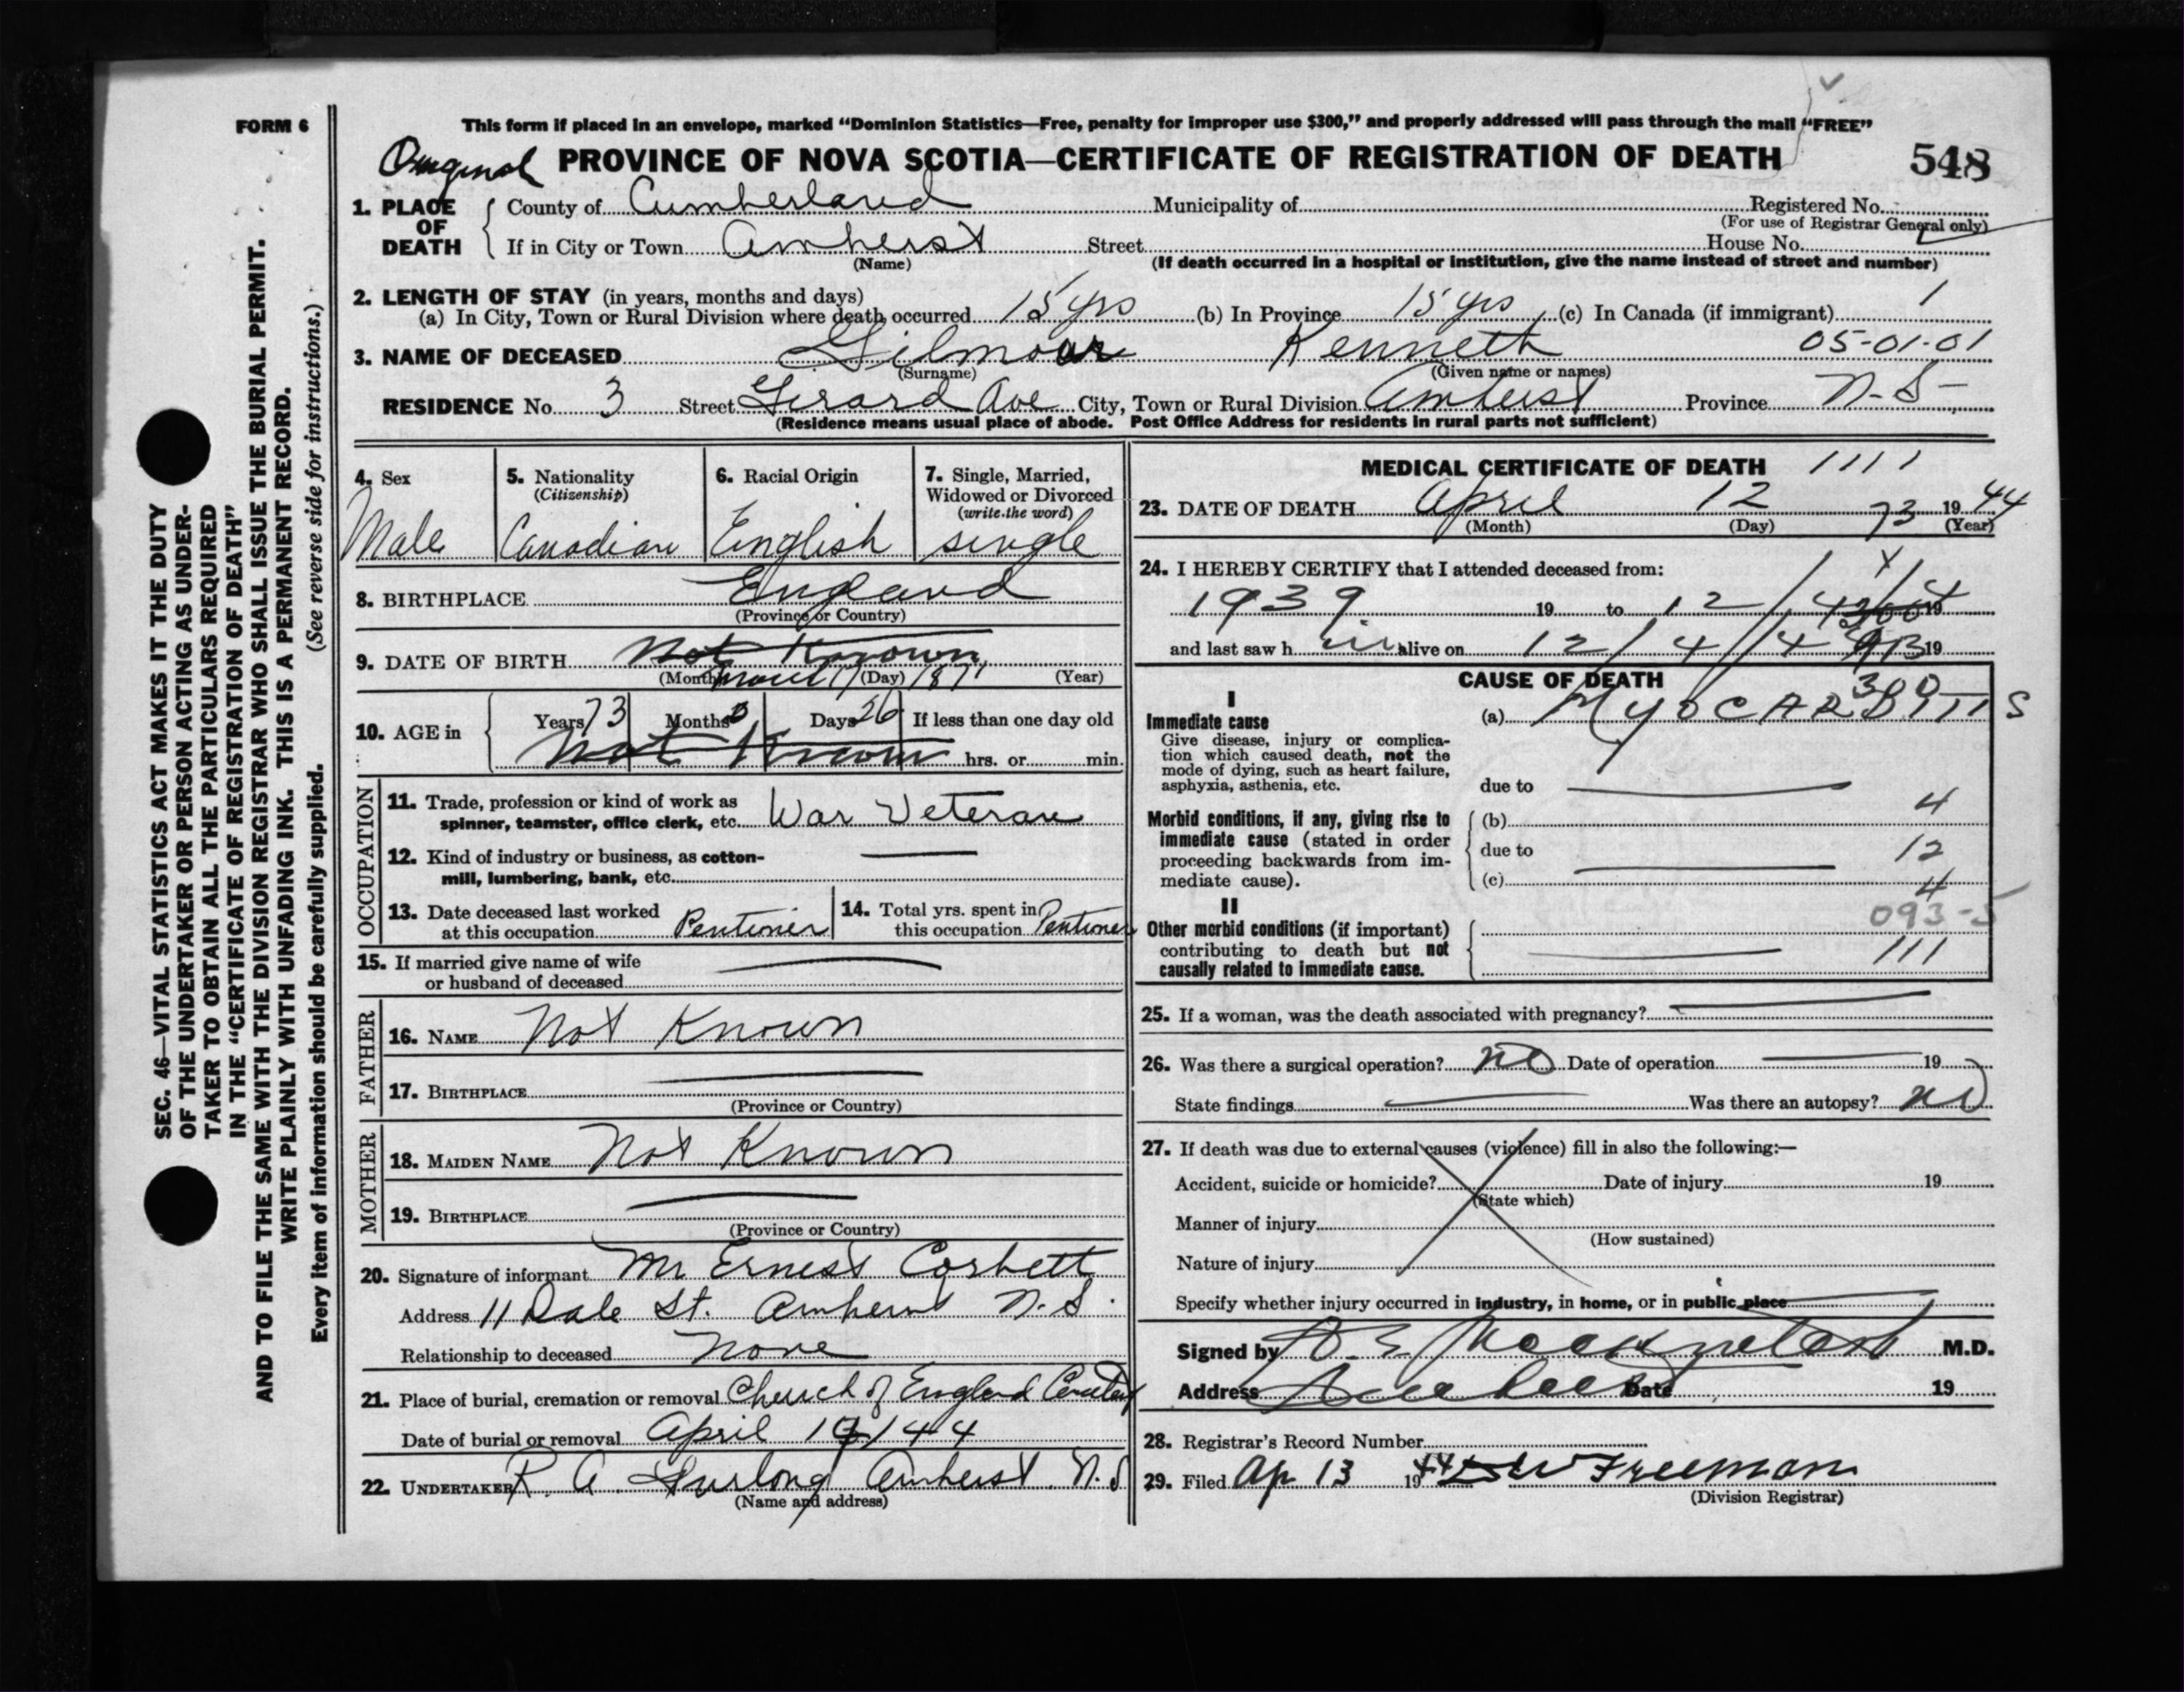 FORM 6
This form if placed in an envelope, marked “Dominion Statistics—Free, penalty for improper use $300,” and properly addressed will pass through the mail “FREE”
Original PROVINCE OF NOVA SCOTIA—CERTIFICATE OF REGISTRATION OF DEATH 548
1. PLACE OF DEATH
County of Cumberland Municipality of Registered No.
(For use of Registrar General only)
If in City or Town Amherst Street House No.
(Name) (If death occurred in a hospital or institution, give the name instead of street and number)
2. LENGTH OF STAY (in years, months and days)
(a) In City, Town or Rural Division where death occurred 15 yrs (b) In Province 15 yrs (c) In Canada (if immigrant) 1
3. NAME OF DECEASED Gilmour Kenneth 05-01-01
(Surname) (Given name or names)
RESIDENCE No. 3 Street Gerard Ave City, Town or Rural Division Amherst Province N.S-
(Residence means usual place of abode. Post Office Address for residents in rural parts not sufficient)
4. Sex
Male
5. Nationality
(Citizenship)
Canadian
6. Racial Origin
English
7. Single, Married,
Widowed or Divorced
(write the word)
single
8. BIRTHPLACE England
(Province or Country)
9. DATE OF BIRTH Not Known
(Month) 17 (Day) 1871 (Year)
10. AGE in Years 73 Months Days 26 If less than one day old
Not Known hrs. or min.
OCCUPATION
11. Trade, profession or kind of work as
spinner, teamster, office clerk, etc. War Veteran
12. Kind of industry or business, as cotton-
mill, lumbering, bank, etc.
13. Date deceased last worked
at this occupation Pentioner
14. Total yrs. spent in
this occupation Pentioner
15. If married give name of wife
or husband of deceased
FATHER
16. NAME Not Known
17. BIRTHPLACE
(Province or Country)
MOTHER
18. MAIDEN NAME Not Known
19. BIRTHPLACE
(Province or Country)
20. Signature of informant Mr Ernest Corbett
Address 11 Dale St. Amherst N.S.
Relationship to deceased None
21. Place of burial, cremation or removal Church of England Cemetery
Date of burial or removal April 44
22. UNDERTAKER R. A. Furlong Amherst N.S
(Name and address)
MEDICAL CERTIFICATE OF DEATH 1111
23. DATE OF DEATH April 12 1944
(Month) (Day) 73 (Year)
24. I HEREBY CERTIFY that I attended deceased from:
1939 19 to 12/4/ 19
and last saw h im alive on 12/4/4 19
CAUSE OF DEATH
I
Immediate cause
Give disease, injury or complica-
tion which caused death, not the
mode of dying, such as heart failure,
asphyxia, asthenia, etc.
(a) MYOCARDITIS
due to
Morbid conditions, if any, giving rise to
immediate cause (stated in order
proceeding backwards from im-
mediate cause).
(b) 4
due to 12
(c) 4
II
Other morbid conditions (if important)
contributing to death but not
causally related to immediate cause.
093-5
111
25. If a woman, was the death associated with pregnancy?
26. Was there a surgical operation? no Date of operation 19
State findings Was there an autopsy? no
27. If death was due to external causes (violence) fill in also the following:—
Accident, suicide or homicide? Date of injury 19
(State which)
Manner of injury
(How sustained)
Nature of injury
Specify whether injury occurred in industry, in home, or in public place
Signed by M.D.
Address Amherst Date 19
28. Registrar's Record Number
29. Filed Ap 13 1944 Freeman
(Division Registrar)
SEC. 46—VITAL STATISTICS ACT MAKES IT THE DUTY
OF THE UNDERTAKER OR PERSON ACTING AS UNDER-
TAKER TO OBTAIN ALL THE PARTICULARS REQUIRED
IN THE “CERTIFICATE OF REGISTRATION OF DEATH”
AND TO FILE THE SAME WITH THE DIVISION REGISTRAR WHO SHALL ISSUE THE BURIAL PERMIT.
WRITE PLAINLY WITH UNFADING INK. THIS IS A PERMANENT RECORD.
Every item of information should be carefully supplied. (See reverse side for instructions.)